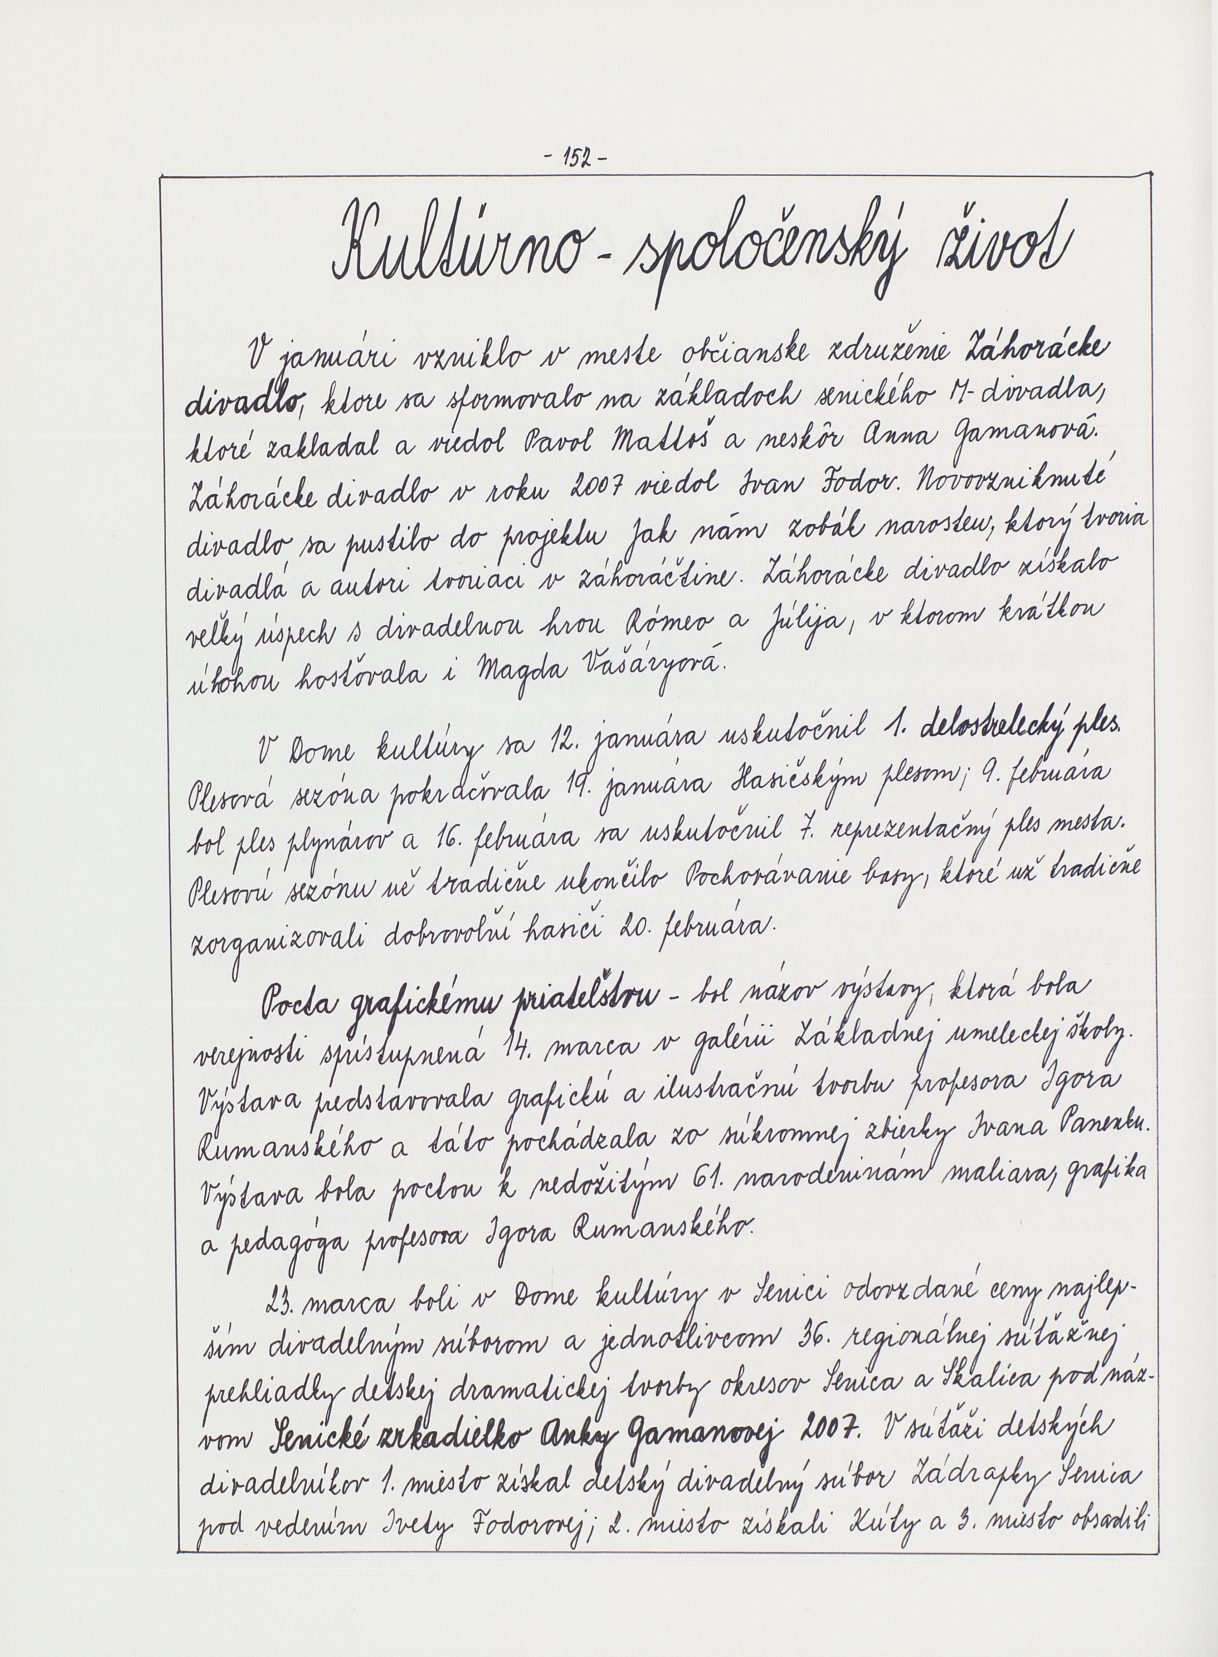 - 152 -
Kultúrno - spoločenský život
V januári vzniklo v meste občianske združenie Záhorácke
divadlo, ktore sa sformovalo na základoch senického M-divadla,
ktoré zakladal a viedol Pavol Mattoš a neskôr Anna Gamanová.
Záhorácke divadlo v roku 2007 viedol Ivan Fodor. Novovzniknuté
divadlo sa pustilo do projektu Jak nám zobák narosteu, ktorý tvoria
divadlá a autori tvoriaci v záhoráčtine. Záhorácke divadlo získalo
veľký úspech s divadelnou hrou Rómeo a Júlija, v ktorom krátkou
úlohou hosťovala i Magda Vašáryová.
V Dome kultúry sa 12. januára uskutočnil 1. delostrelecký ples.
Plesová sezóna pokračovala 19. januára Hasičským plesom; 9. februára
bol ples plynárov a 16. februára sa uskutočnil 7. reprezentačný ples mesta.
Plesovú sezónu už tradične ukončilo Pochovávanie basy, ktoré už tradične
zorganizovali dobrovoľní hasiči 20. februára.
Pocta grafickému priateľstvu - bol názov výstavy, ktorá bola
verejnosti sprístupnená 14. marca v galérii Základnej umeleckej školy.
Výstava pedstavovala grafickú a ilustračnú tvorbu profesora Igora
Rumanského a táto pochádzala zo súkromnej zbierky Ivana Panenku.
Výstava bola poctou k nedožitým 61. narodeninám maliara, grafika
a pedagóga profesora Igora Rumanského.
23. marca boli v Dome kultúry v Senici odovzdané ceny najlep-
ším divadelným súborom a jednotlivcom 36. regionálnej súťažnej
prehliadky detskej dramatickej tvorby okresov Senica a Skalica pod náz-
vom Senické zrkadielko Anky Gamanovej 2007. V súťaži detských
divadelníkov 1. miesto získal detský divadelný súbor Zádrapky Senica
pod vedením Ivety Fodorovej; 2. miesto získali Kúty a 3. miesto obsadili